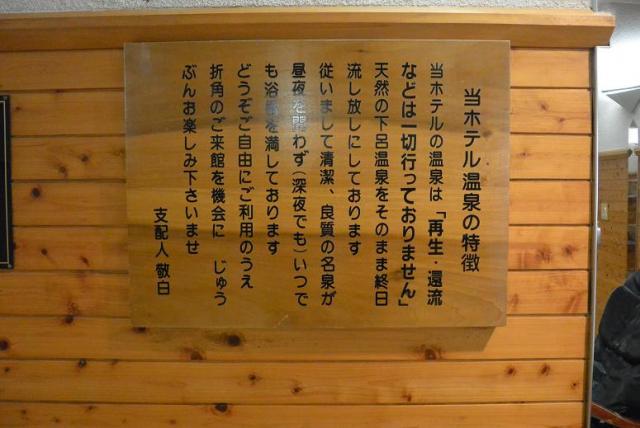 当ホテル温泉の特徴
当ホテルの温泉は「再生・還流
などは一切行っておりません」
天然の下呂温泉をそのまま終日
流し放しにしております
従いまして清潔、良質の名泉が
昼夜を問わず(深夜でも)いつで
も浴槽を満しております
どうぞご自由にご利用のうえ
折角のご来館を機会に じゅう
ぶんお楽しみ下さいませ
支配人 敬白